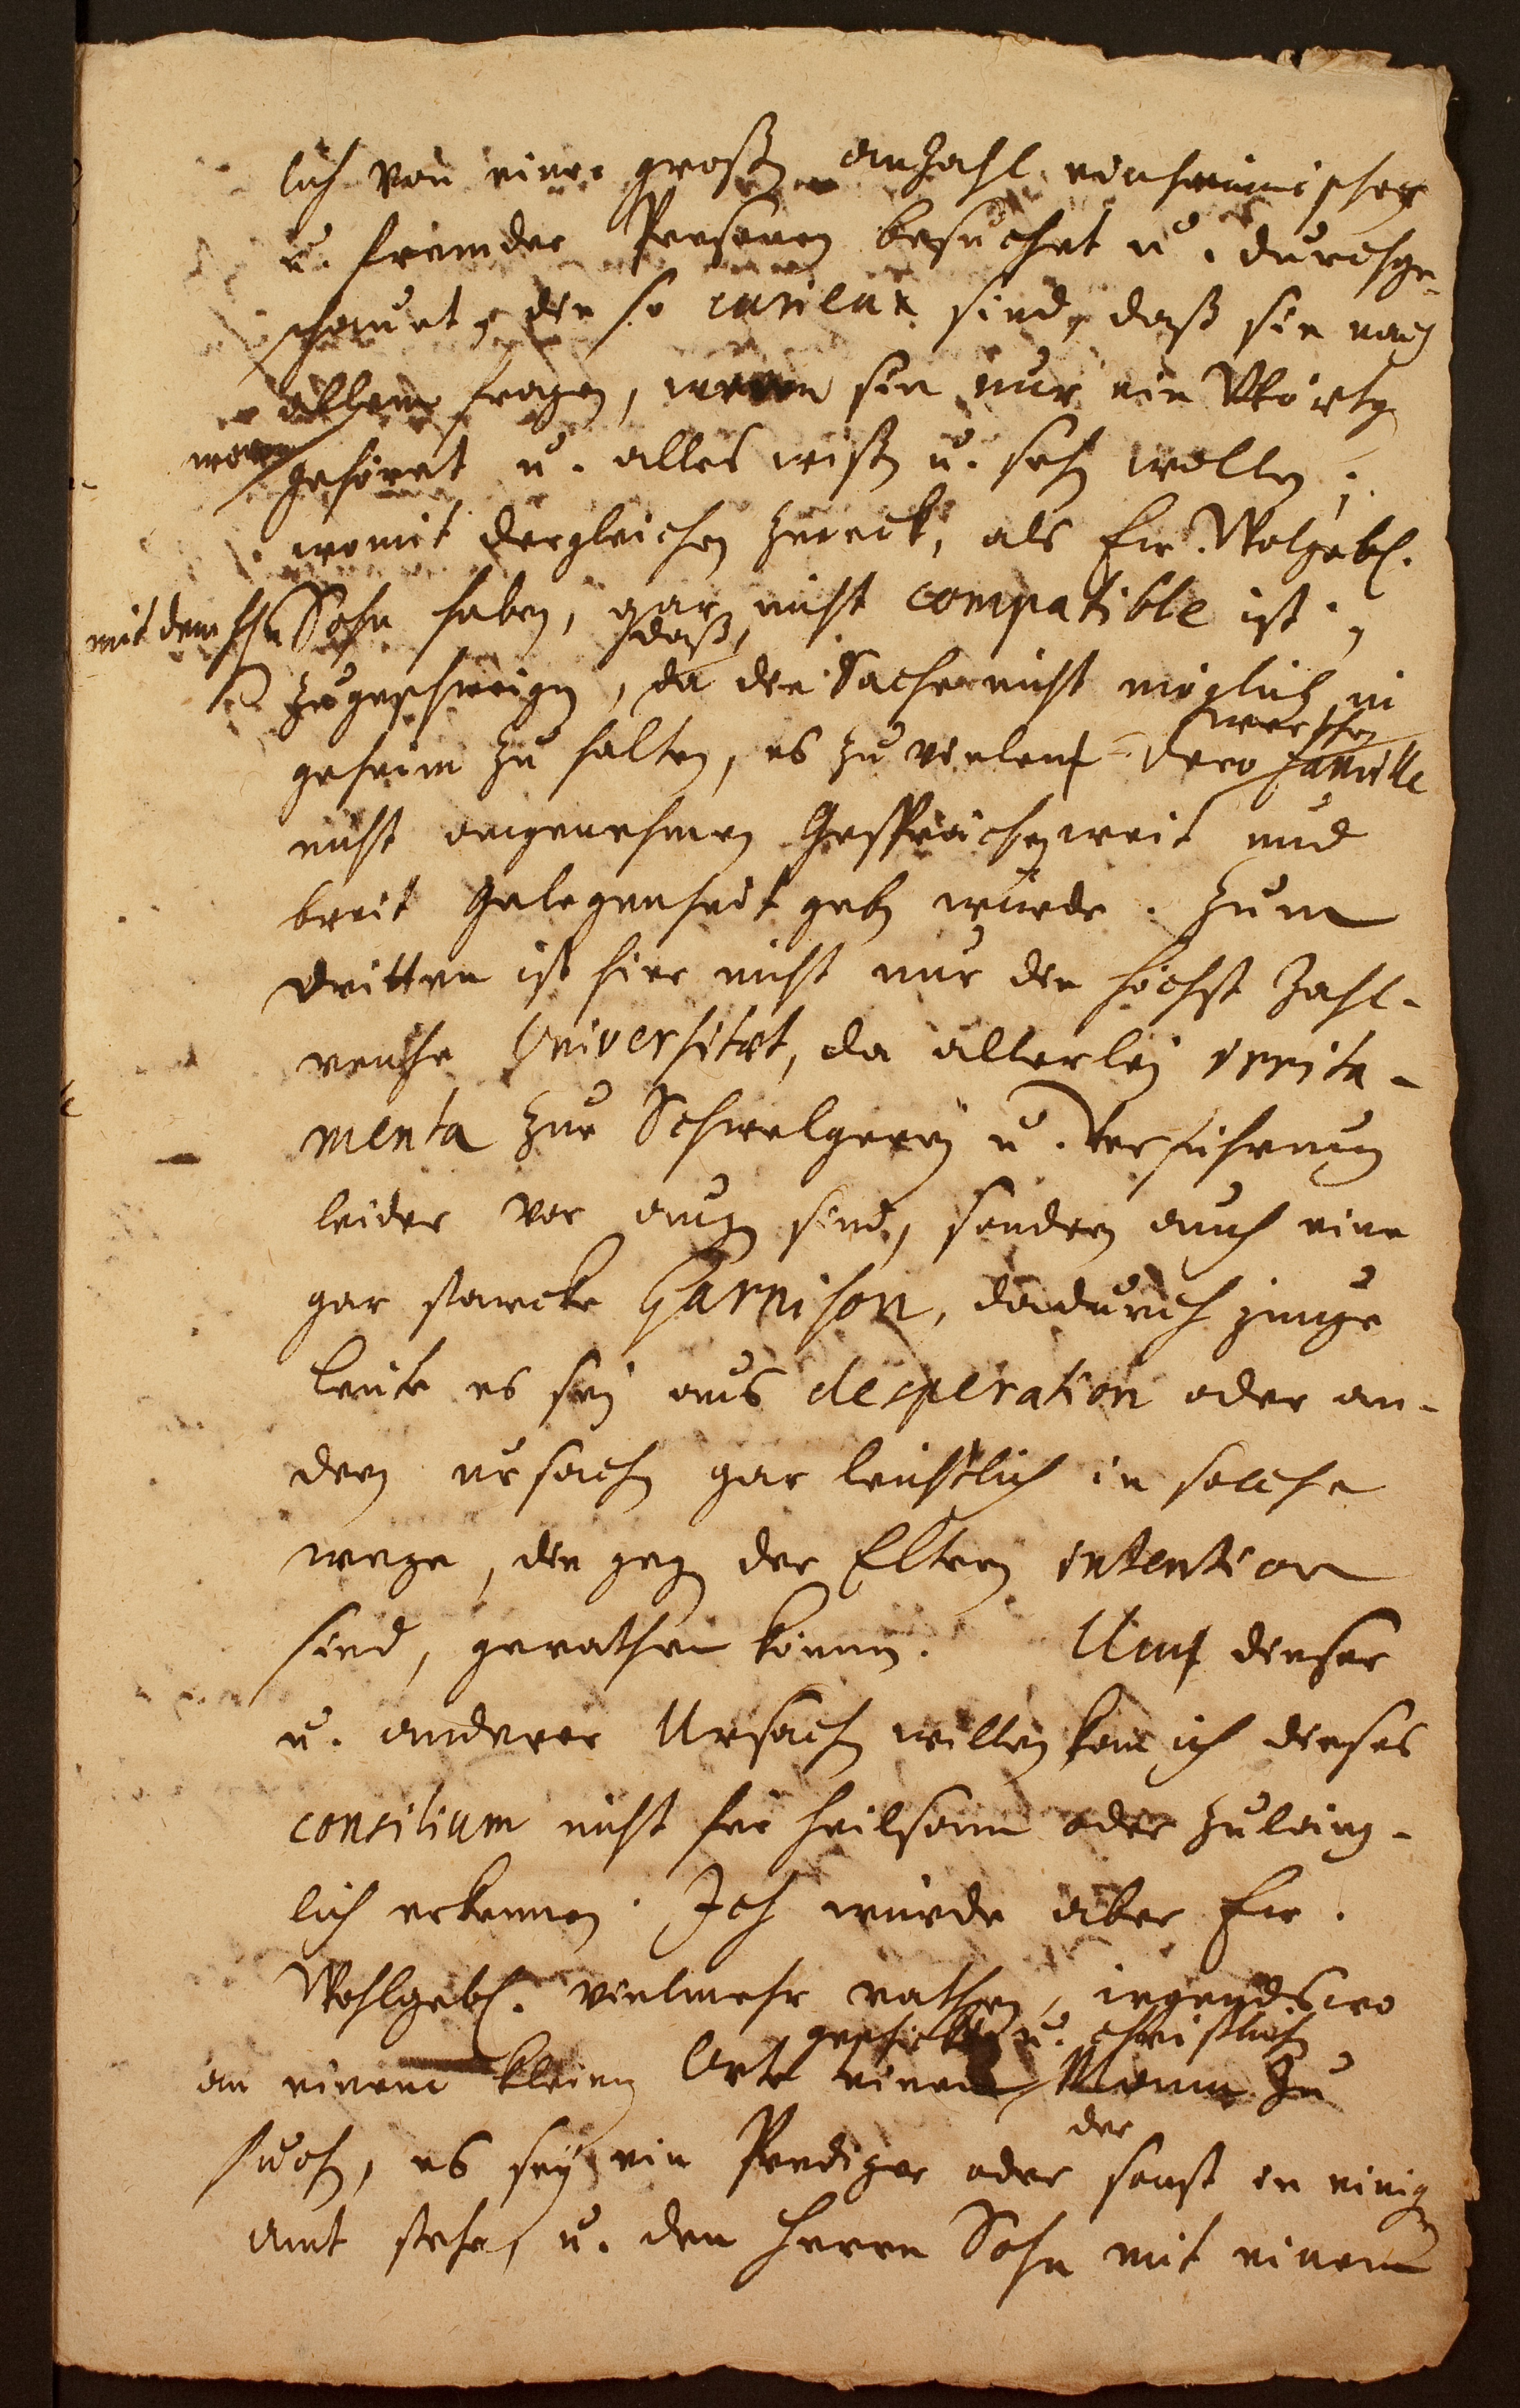 lich von einer großen anzahl einheimischer
u. fremder Personen besuchet u. durchge-
schauet, die so curieux sind, daß sie nach
allem fragen, wenn sie nur ein Wörtgen
wovon gehöret u. alles wißen u. sehen wollen;
womit dergleichen zweck, als Ew. Wolgeb.
mit dem Hn Sohn haben, gar nicht compatible ist;
daß,
zugeschweigen, da die Sache nicht möglich in
geheim zu halten, es zu vielen dero familie
nicht angenehmen Gesprächen weit und
breit gelegenheit geben würde. Zum
dritten ist hier nicht nur die höchst zahl-
reiche Universitæt, da allerley irrita-
menta zur Schwelgerey u. Verführung
leider vor augen sind, sondern auch eine
gar starcke Garnison, dadurch junge
leute es sey aus desperation oder an-
dern ursachen gar leichtlich in solche
wege, die gegen der Eltern intention
sind, gerathen können. Um dieser
u. anderer Ursachen willen kan ich dieses
consilium nicht für heilsam oder zuläng-
lich erkennen. Ich würde aber Ew.
Wohlgeb. vielmehr rathen, irgendswo
geschickten u. christlichen
an einem kleinen Orte einen Mann zu
der
suchen, es sey ein Prediger oder sonst in einigen
amt stehe, u. den Herrn Sohn mit einem